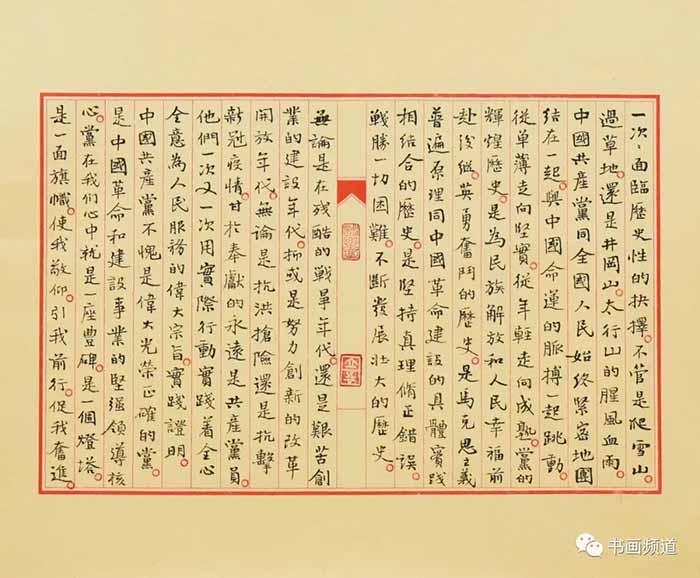 一次〻面臨歷史性的抉擇。不管是爬雪山。
過草地。還是井岡山。太行山的腥風血雨。
中國共產黨同全國人民始終緊密地團
結在一起。與中國命運的脈搏一起跳動。
從單薄走向堅實。從年輕走向成熟。黨的
輝煌歷史。是為民族解放和人民幸福前
赴後繼。英勇奮鬥的歷史。是馬克思主義
普遍原理同中國革命建設的具體實踐
相結合的歷史。是堅持真理修正錯誤。
戰勝一切困難。不斷發展壯大的歷史。
無論是在殘酷的戰爭年代。還是艱苦創
業的建設年代。抑或是努力創新的改革
開放年代。無論是抗洪搶險還是抗擊
新冠疫情。甘於奉獻的永遠是共產黨員。
他們一次又一次用實際行動實踐著全心
全意為人民服務的偉大宗旨。實踐證明。
中國共產黨不愧是偉大光榮正確的黨。
是中國革命和建設事業的堅强領導核
心。黨在我们心中就是一座豐碑。是一個燈塔。
是一面旗幟。使我敬仰。引我前行。促我奮進。
书画频道